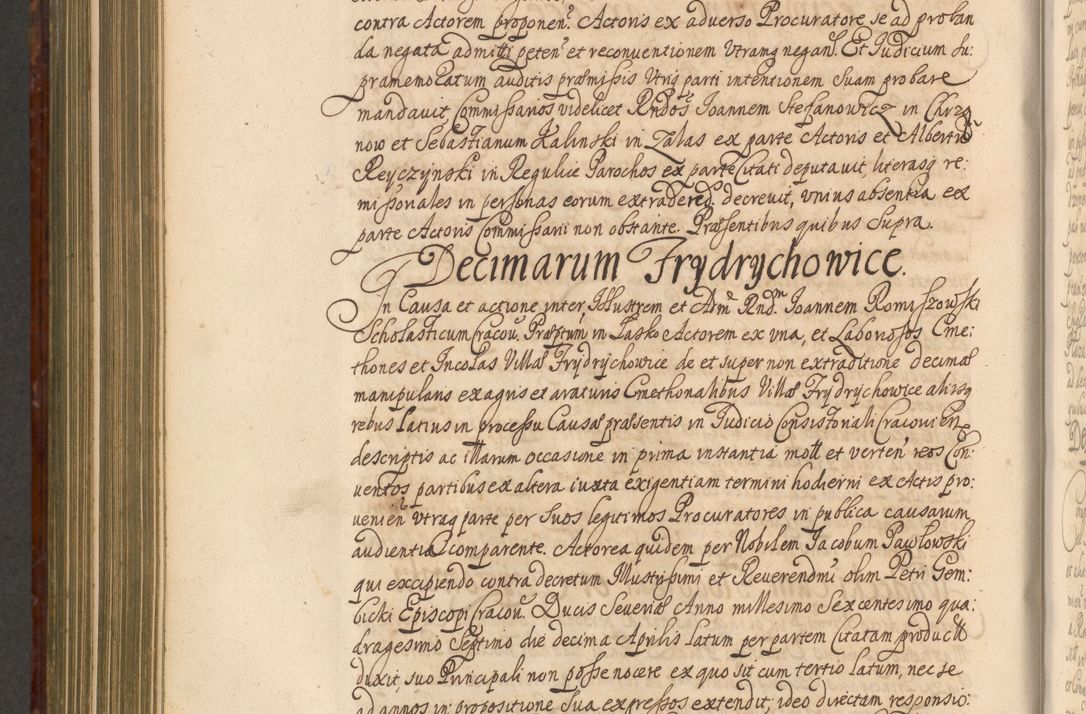 contra Actorem proponen. Actoris ex aduerso Procuratore se ad proban
da negata admitti peten et reconuentionem Vtramq negan. Et Iudicium su:
pramemoratum auditis præmissis Vtriq parti intentionem suam probare
mandauit, Commissarios videlicet Rndos Ioannem Stefanowicz in Charza
now et Sebastianum Kalinski in Zalas ex parte Actoris et Albertu
Reyczynski in Regulice Parochos ex parte Citati deputauit, literasq re:
missoriales in personas eorum extradered. decreuit, vnius absentia ex
parte Actoris Commissarii non obstante. Præsentibus quibus supra.
Decimarum Frydrychowice.
In Causa et actione inter Illustrem et Adm Rndm Ioannem Romiszowski
Scholasticum Cracou. Præptum in Lasko Actorem ex vna, et Laboriosos Cme:
thones et Incolas Villæ Frydrychowice de et super non extraditione decimæ
manipularis ex agris et araturis Cmethonalibus Villæ Frydrychowice alijsq
rebus latius in processu Causæ præsentis in Iudicio Consistoriali Cracouien
descriptis ac illarum occasione in prima instantia mott et verten reos Con:
uentos partibus ex altera iuxta exigentiam termini hodierni ex Actis pro:
uenien vtraq parte per suos legitimos Procuratores in publica causarum
audientia comparente. Actorea quidem per Nobilem Iacobum Pawlowski
qui excipiendo contra decretum Illustrissimi et Reuerendmi olim Petri Gem:
bicki Episcopi Cracou. Ducis Seueriæ Anno millesimo Sexcentesimo qua:
dragesimo Septimo die decima Aprilis latum per partem Citatam product
duxit, suo Principali non posse nocere ex quo sit cum tertio latum, nec se
ad annos in propositione sua expressos extendit; ideo directam responsio: